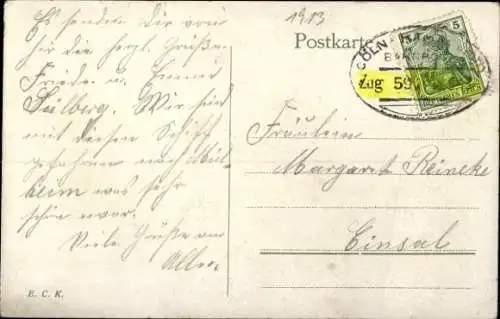 Es senden Dir von
hier die herzl. Grüße
Frieda u. Henner
Seilberg. Wir sind
mit diesem Schiff
gefahren nach Mül-
heim was sehr
schön war.
Viele Grüße an
Alle.
B. C. K.
1913
Postkarte
CÖLN
BAHNPOST
Zug 59
5
Fräulein
Margaret Reincke
Einsal